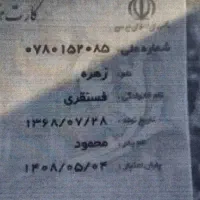 کارت
شماره ملی: ۰۷۸۰۱۵۲۰۸۵
نام: زهره
نام خانوادگی: فستقری
تاریخ تولد: ۱۳۶۸/۰۷/۲۸
نام پدر: محمود
پایان اعتبار: ۱۴۰۸/۰۵/۰۴